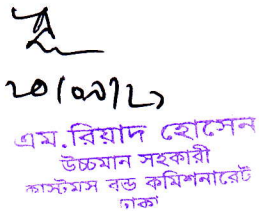 এম.রিয়াদ হোসেন
উচ্চমান সহকারী
কাস্টমস বন্ড কমিশনারেট
ঢাকা